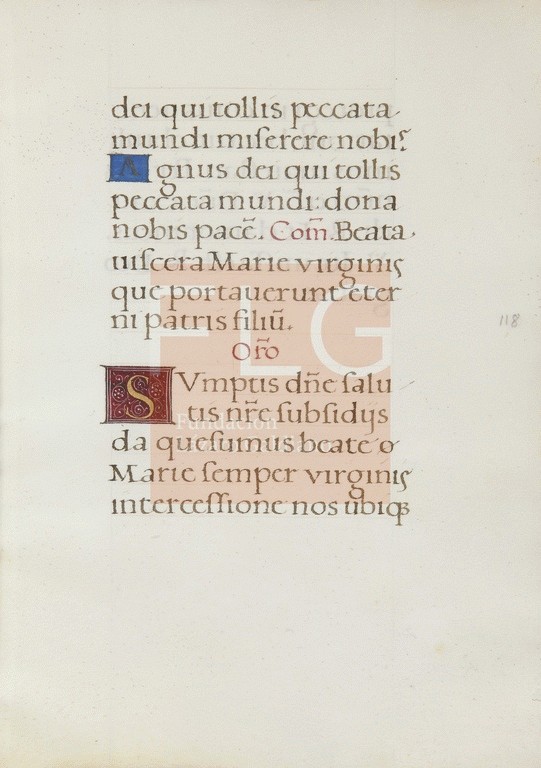 dei qui tollis peccata
mundi miſerere nobiꝰ
Agnus dei qui tollis
peccata mundi: dona
nobis pacē. Com̄. Beata
uiſcera Marie virginis
que portauerunt eter
ni patris filiū.
Or̄o
SVmptis dn̄e ſalu
tis nr̄e ſubſidijs
da queſumus beate
Marie ſemper virginis
interceſſione nos ubiqꝫ
118
FLG
Fundación